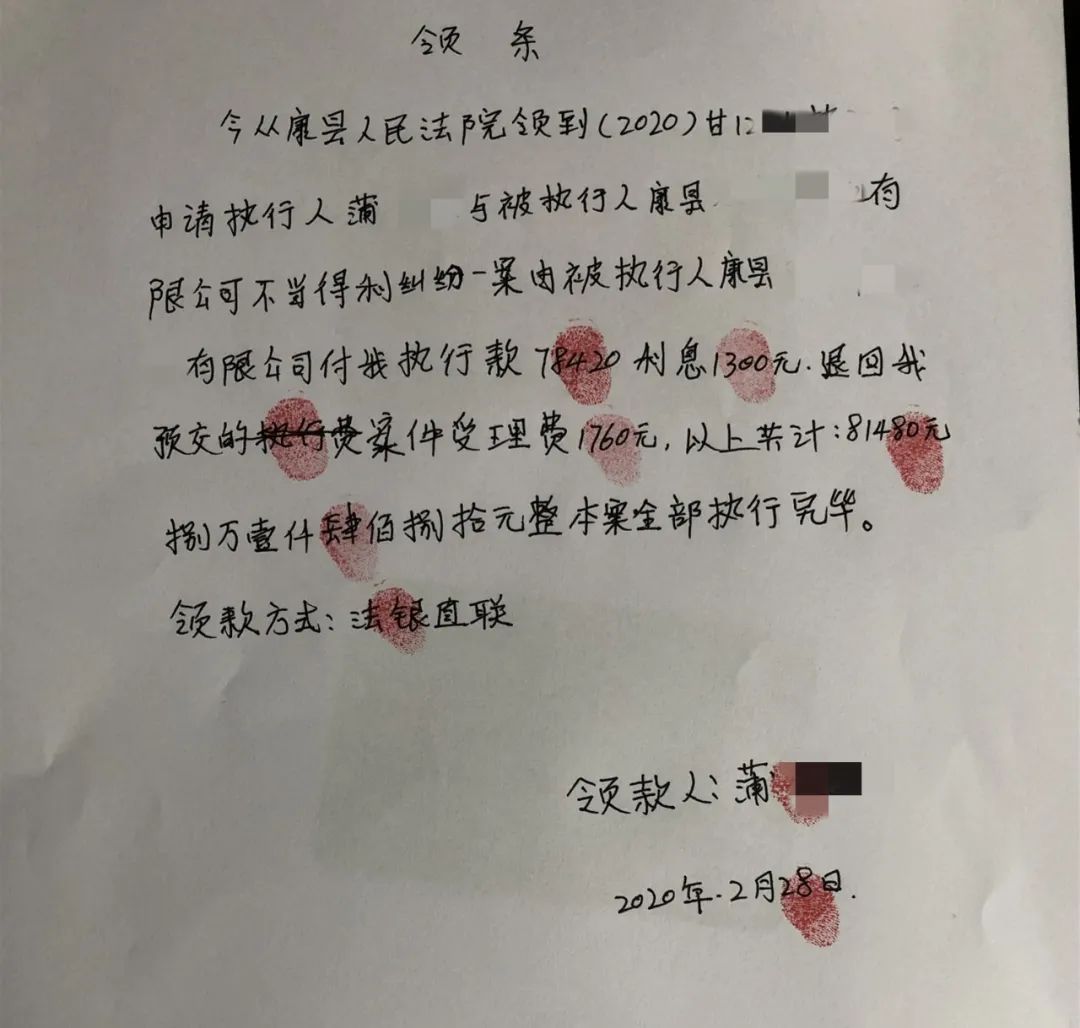 领 条
今从康县人民法院领到(2020)甘12
申请执行人蒲 与被执行人康县 有
限公司不当得利纠纷一案由被执行人康县
有限公司付我执行款78420利息1300元.退回我
预交的执行费案件受理费1760元,以上共计:81480元
捌万壹仟肆佰捌拾元整本案全部执行完毕。
领款方式:法银直联
领款人:蒲
2020年.2月28日.